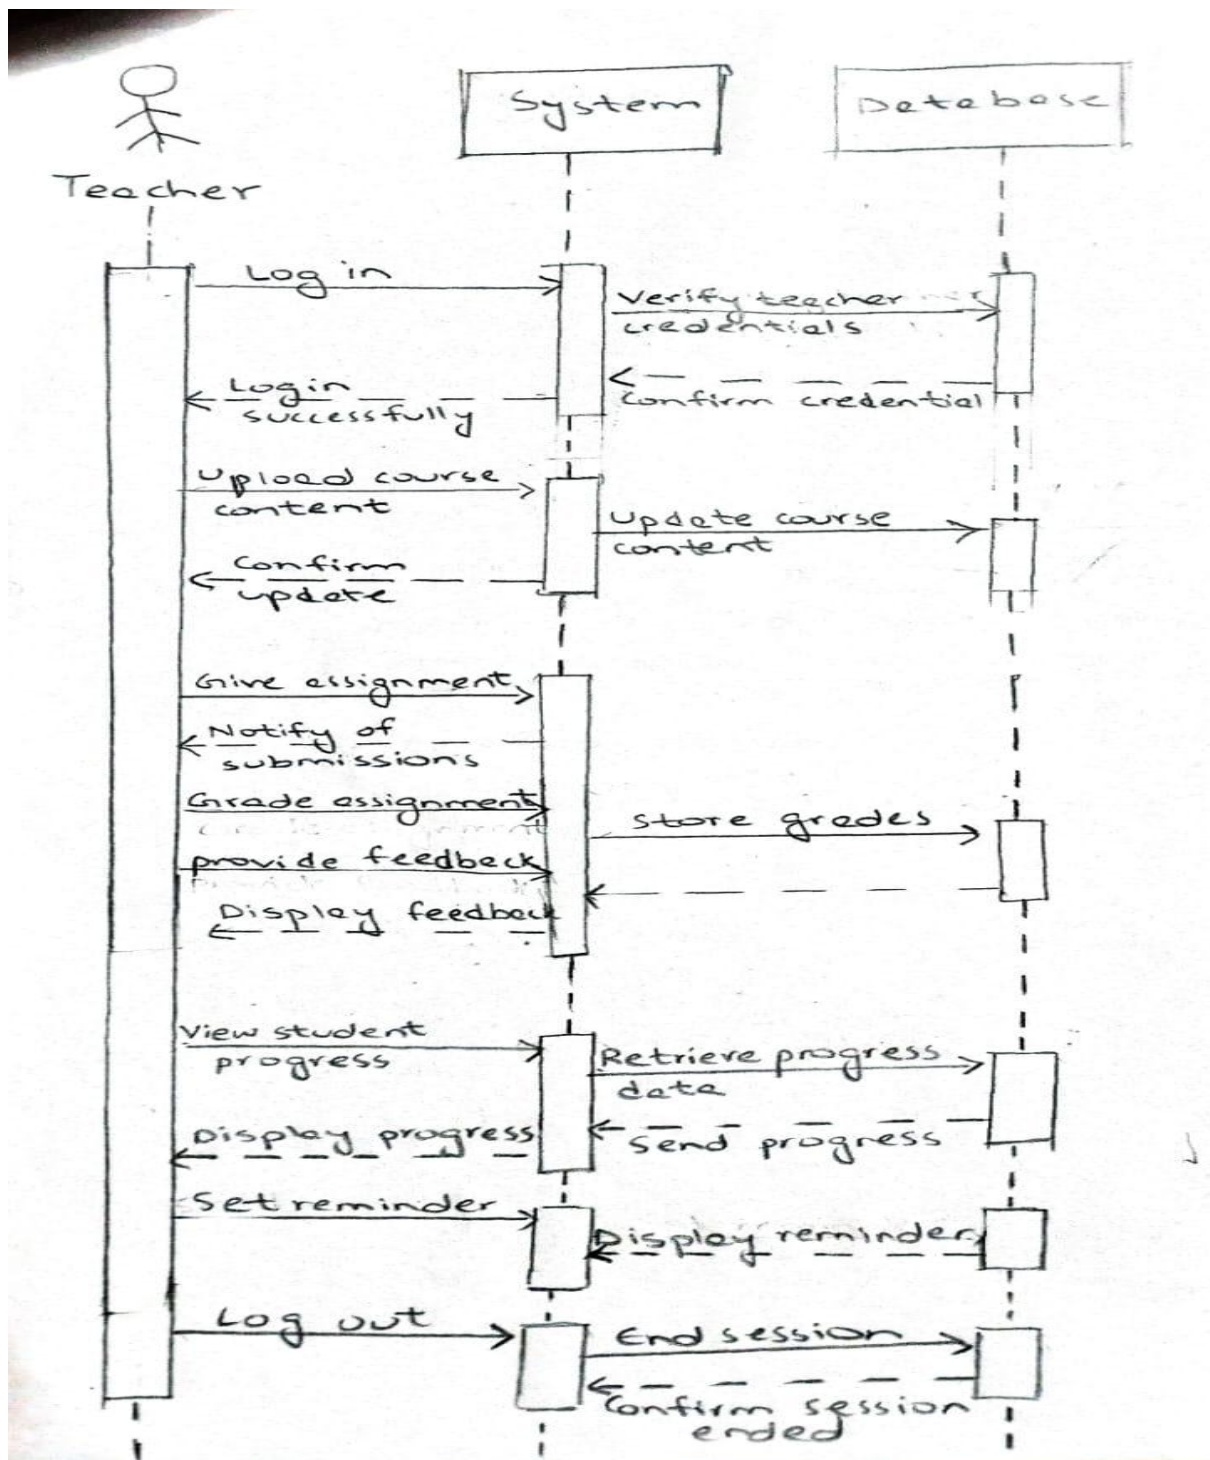 System
Database
Teacher
Log in
Verify teacher
credentials
Login
successfully
Confirm credential
Upload course
content
Update course
content
Confirm
update
Give assignment
Notify of
submissions
Grade assignment
Store grades
provide feedback
Display feedback
View student
progress
Retrieve progress
data
Display progress
Send progress
Set reminder
Display reminder
Log out
End session
Confirm session
ended